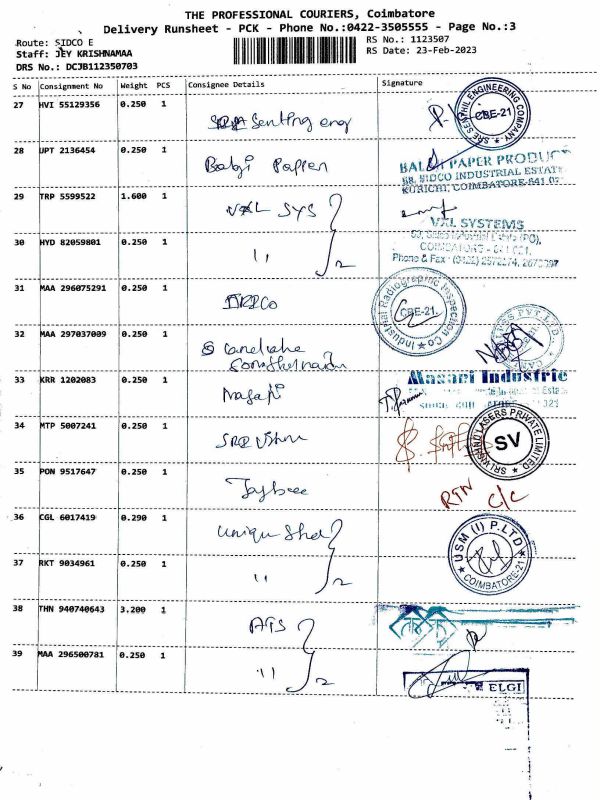 THE PROFESSIONAL COURIERS, Coimbatore
Delivery Runsheet - PCK - Phone No.:0422-3505555 - Page No.:3
Route: SIDCO E
Staff: JEY KRISHNAMAA
DRS No.: DCJB112350703
RS No.: 1123507
RS Date: 23-Feb-2023
S No Consignment No Weight PCS Consignee Details Signature
27 HVI 55129356 0.250 1
SRE SENTHIL ENGINEERING COMPANY CBE-21
28 JPT 2136454 0.250 1 Balaji Papper
PAPER PRODUC
SIDCO INDUSTRIAL ESTATE
KURICHI, COIMBATORE-641 021
29 TRP 5599522 1.600 1 VXL SYS
VXL SYSTEMS
30 HYD 82059801 0.250 1 11 2
Phone & Fax
31 MAA 296075291 0.250 1
Industrial Radiographic Inspection Co CBE-21.
32 MAA 297037009 0.250 1
PVT LTD
33 KRR 1202083 0.250 1 Masani
Masani Industrie
34 MTP 5007241 0.250 1 Sree Vishnu
SRI VISHNU LASERS PRIVATE LIMITED SV
35 PON 9517647 0.250 1 Jaybee
RTN C/C
36 CGL 6017419 0.290 1 Unique Shel
USM (I) P.LTD COIMBATORE-21
37 RKT 9034961 0.250 1 11 2
38 THN 940740643 3.200 1 ATS
39 MAA 296500781 0.250 1 11 2
ELGI